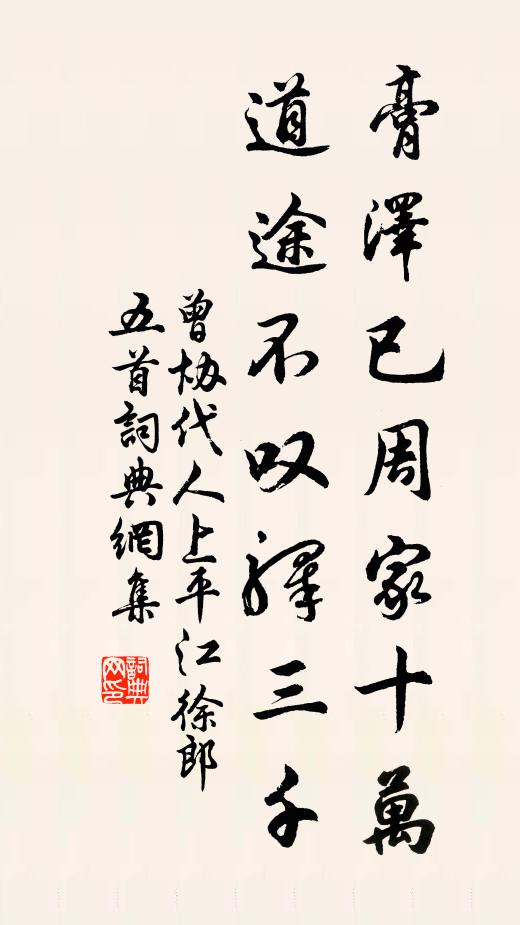 膏澤已周家十萬
道途不叹驛三千
曾协代人上平江徐郎
五首詞典網集
詞典网印